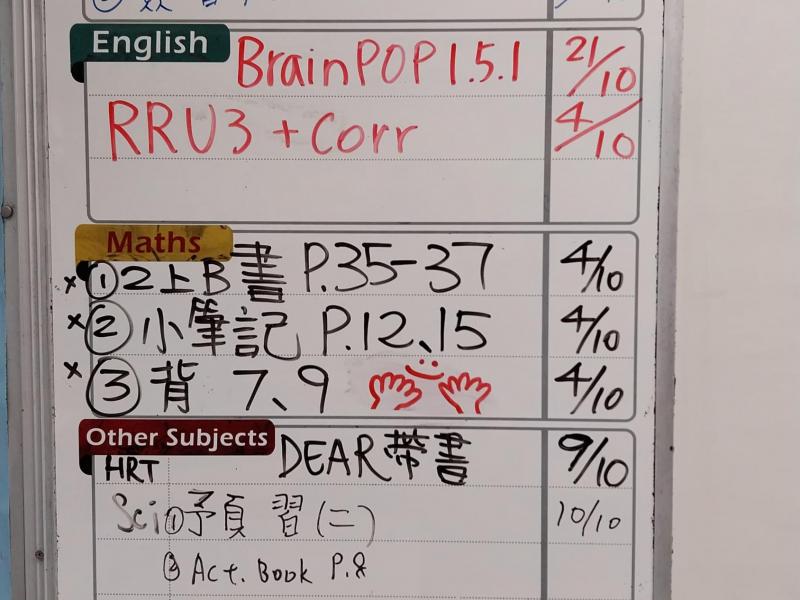 English
BrainPOP 1.5.1 21/10
RRU3 + Corr 4/10
Maths
x ① 2上B書 P.35-37 4/10
x ② 小筆記 P.12、15 4/10
x ③ 背 7、9 4/10
Other Subjects
HRT DEAR帶書 9/10
Sci ① 予頁習(二) 10/10
② Act. Book P.8